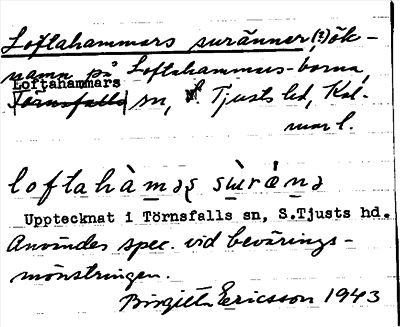 Loftahammars suränner(?) ök-
namn på Loftahammars-borna,
Loftahammars
Törnsfalls sn, S. Tjusts hd, Kal-
mar l.
loftahàmaʂ sùrǽnə
Upptecknat i Törnsfalls sn, S.Tjusts hd.
Användes spec. vid bevärings-
mönstringen.
Birgitta Ericsson 1943